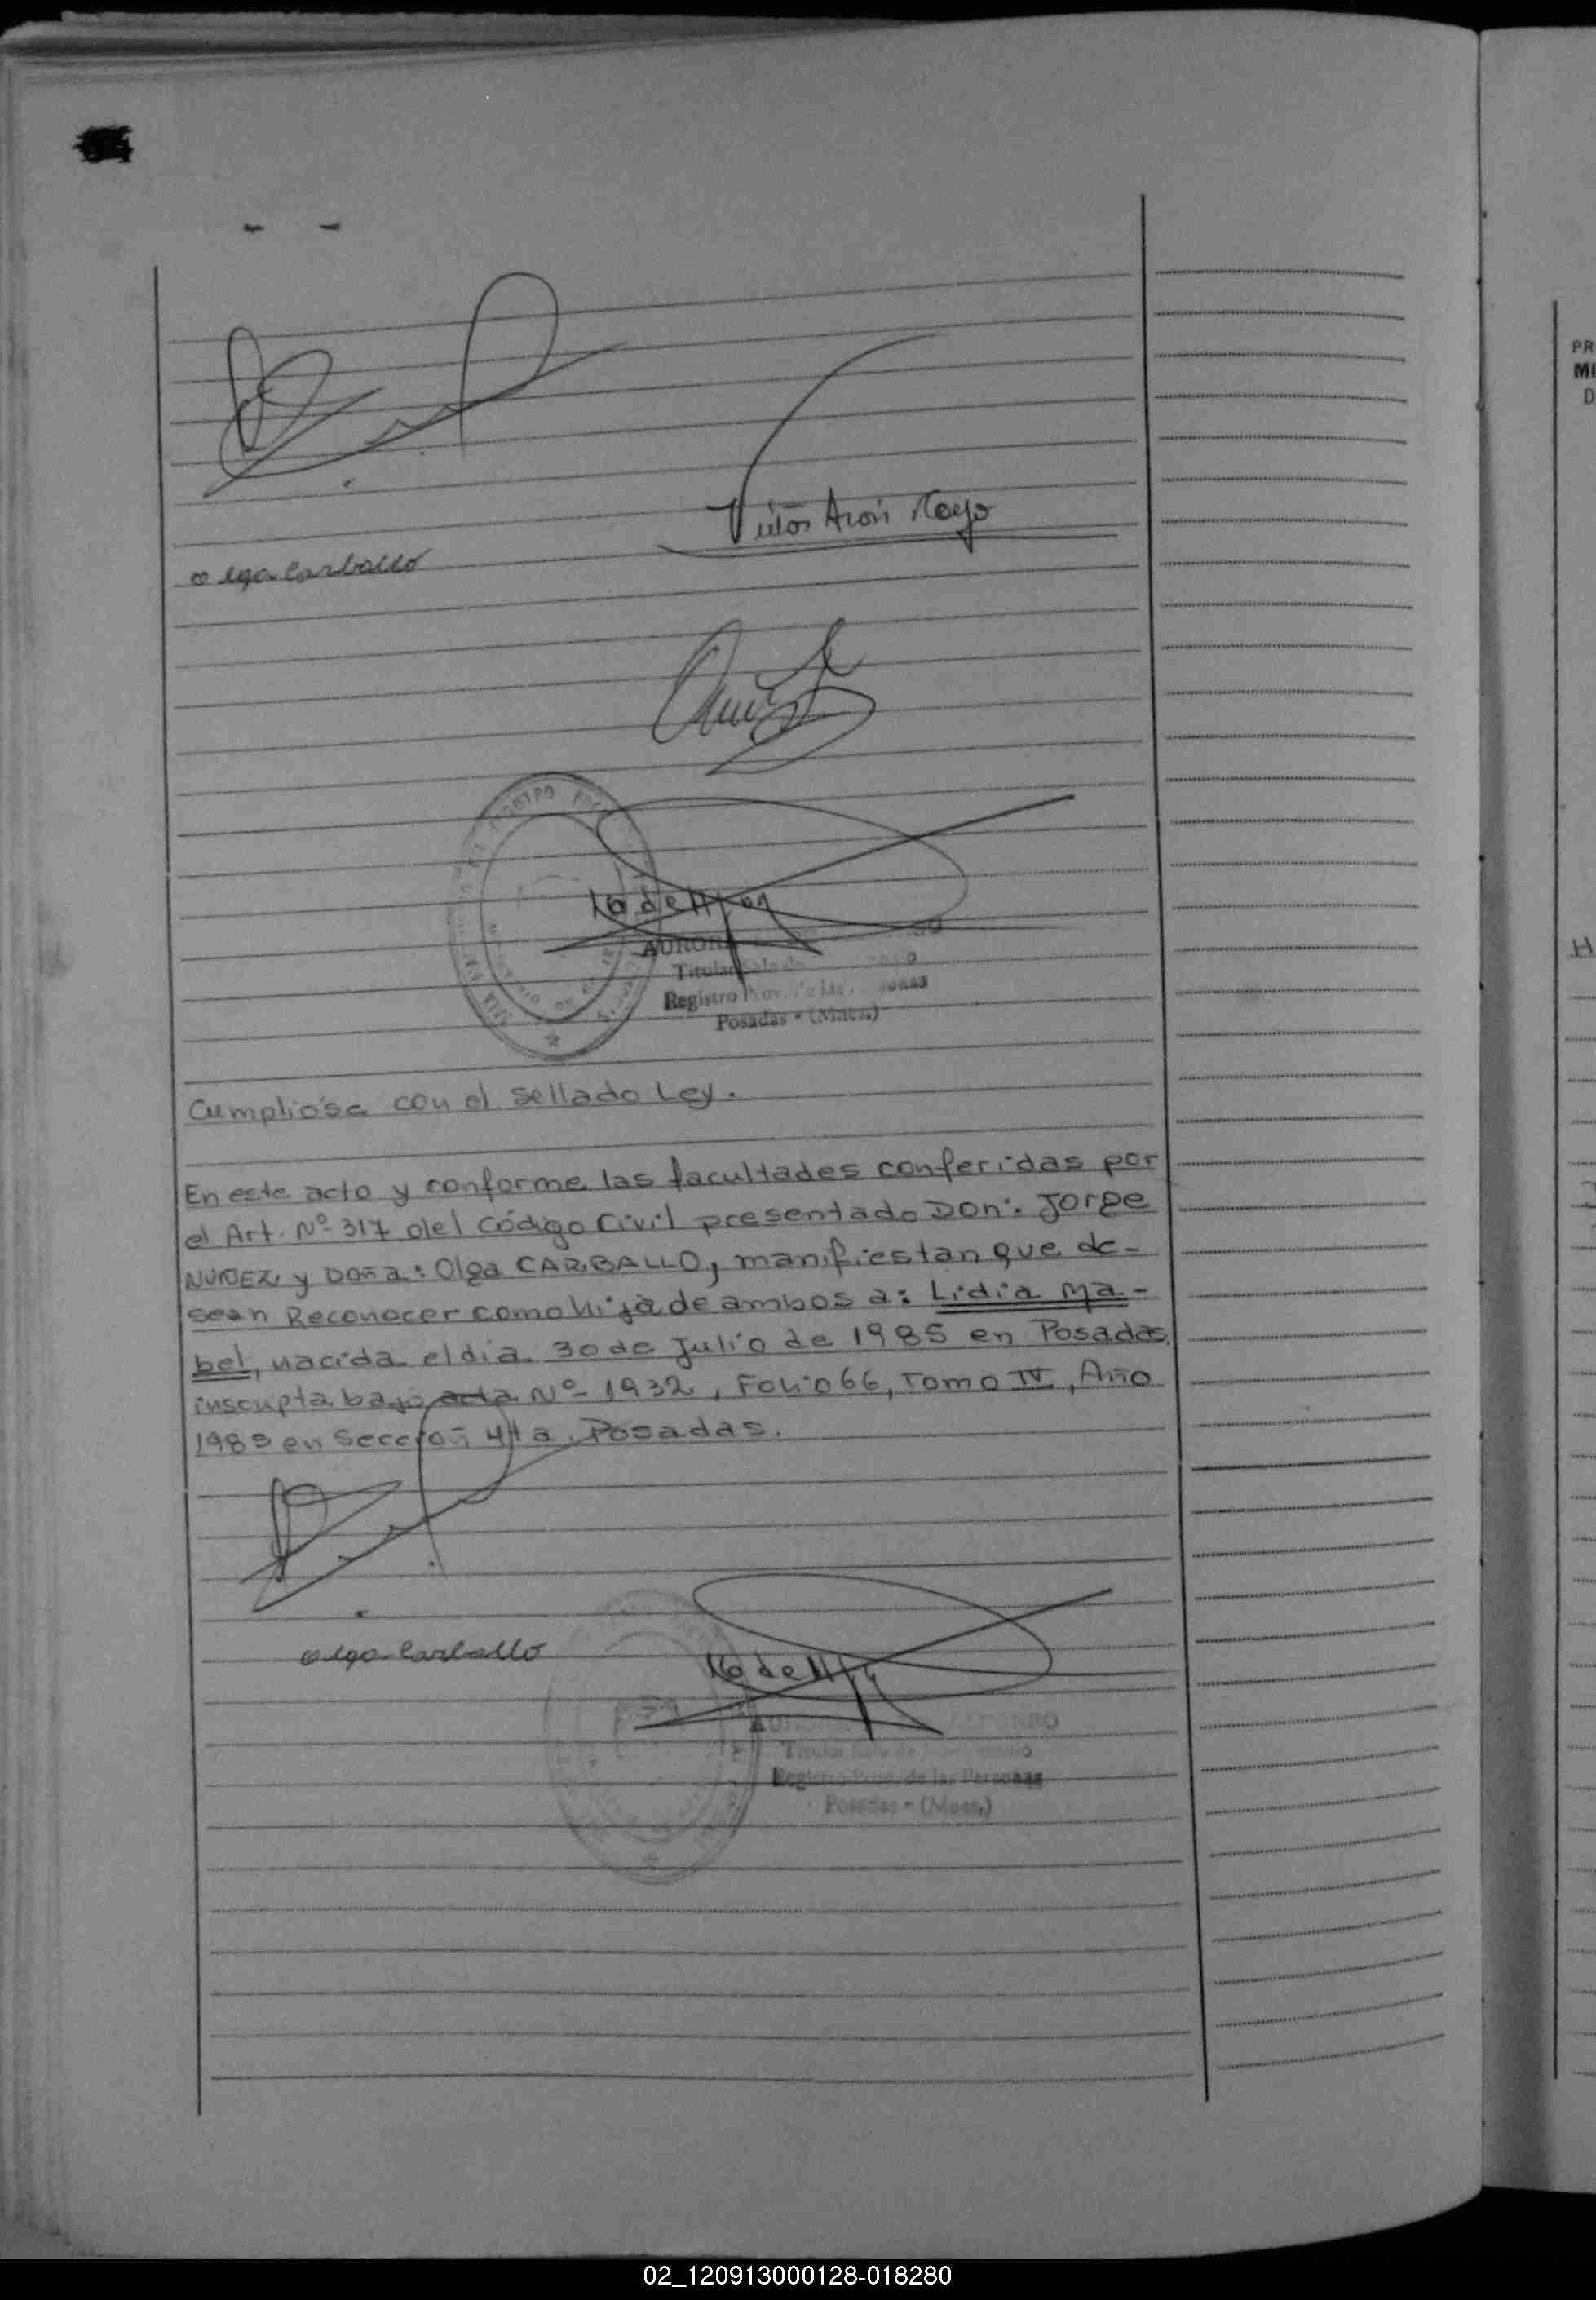 Olga Carballo
REGISTRO
AURORA
Titular Sala de
Registro Prov. de las Personas
Posadas - (Mnes.)
Cumplióse con el sellado Ley.
En este acto y conforme las facultades conferidas por
el Art. Nº 317 del Código Civil presentado Don: Jorge
NUÑEZ y Doña: Olga CARBALLO, manifiestan que de-
sean Reconocer como hija de ambos a: Lidia Ma-
bel, nacida el dia 30 de Julio de 1985 en Posadas,
inscripta bajo acta Nº 1932, Folio 66, Tomo IV, Año
1985 en Sección 4ta. Posadas.
Olga Carballo
Titular Sala de
Registro Prov. de las Personas
Posadas - (Mnes.)
PR
MI
D
H
02_120913000128-018280